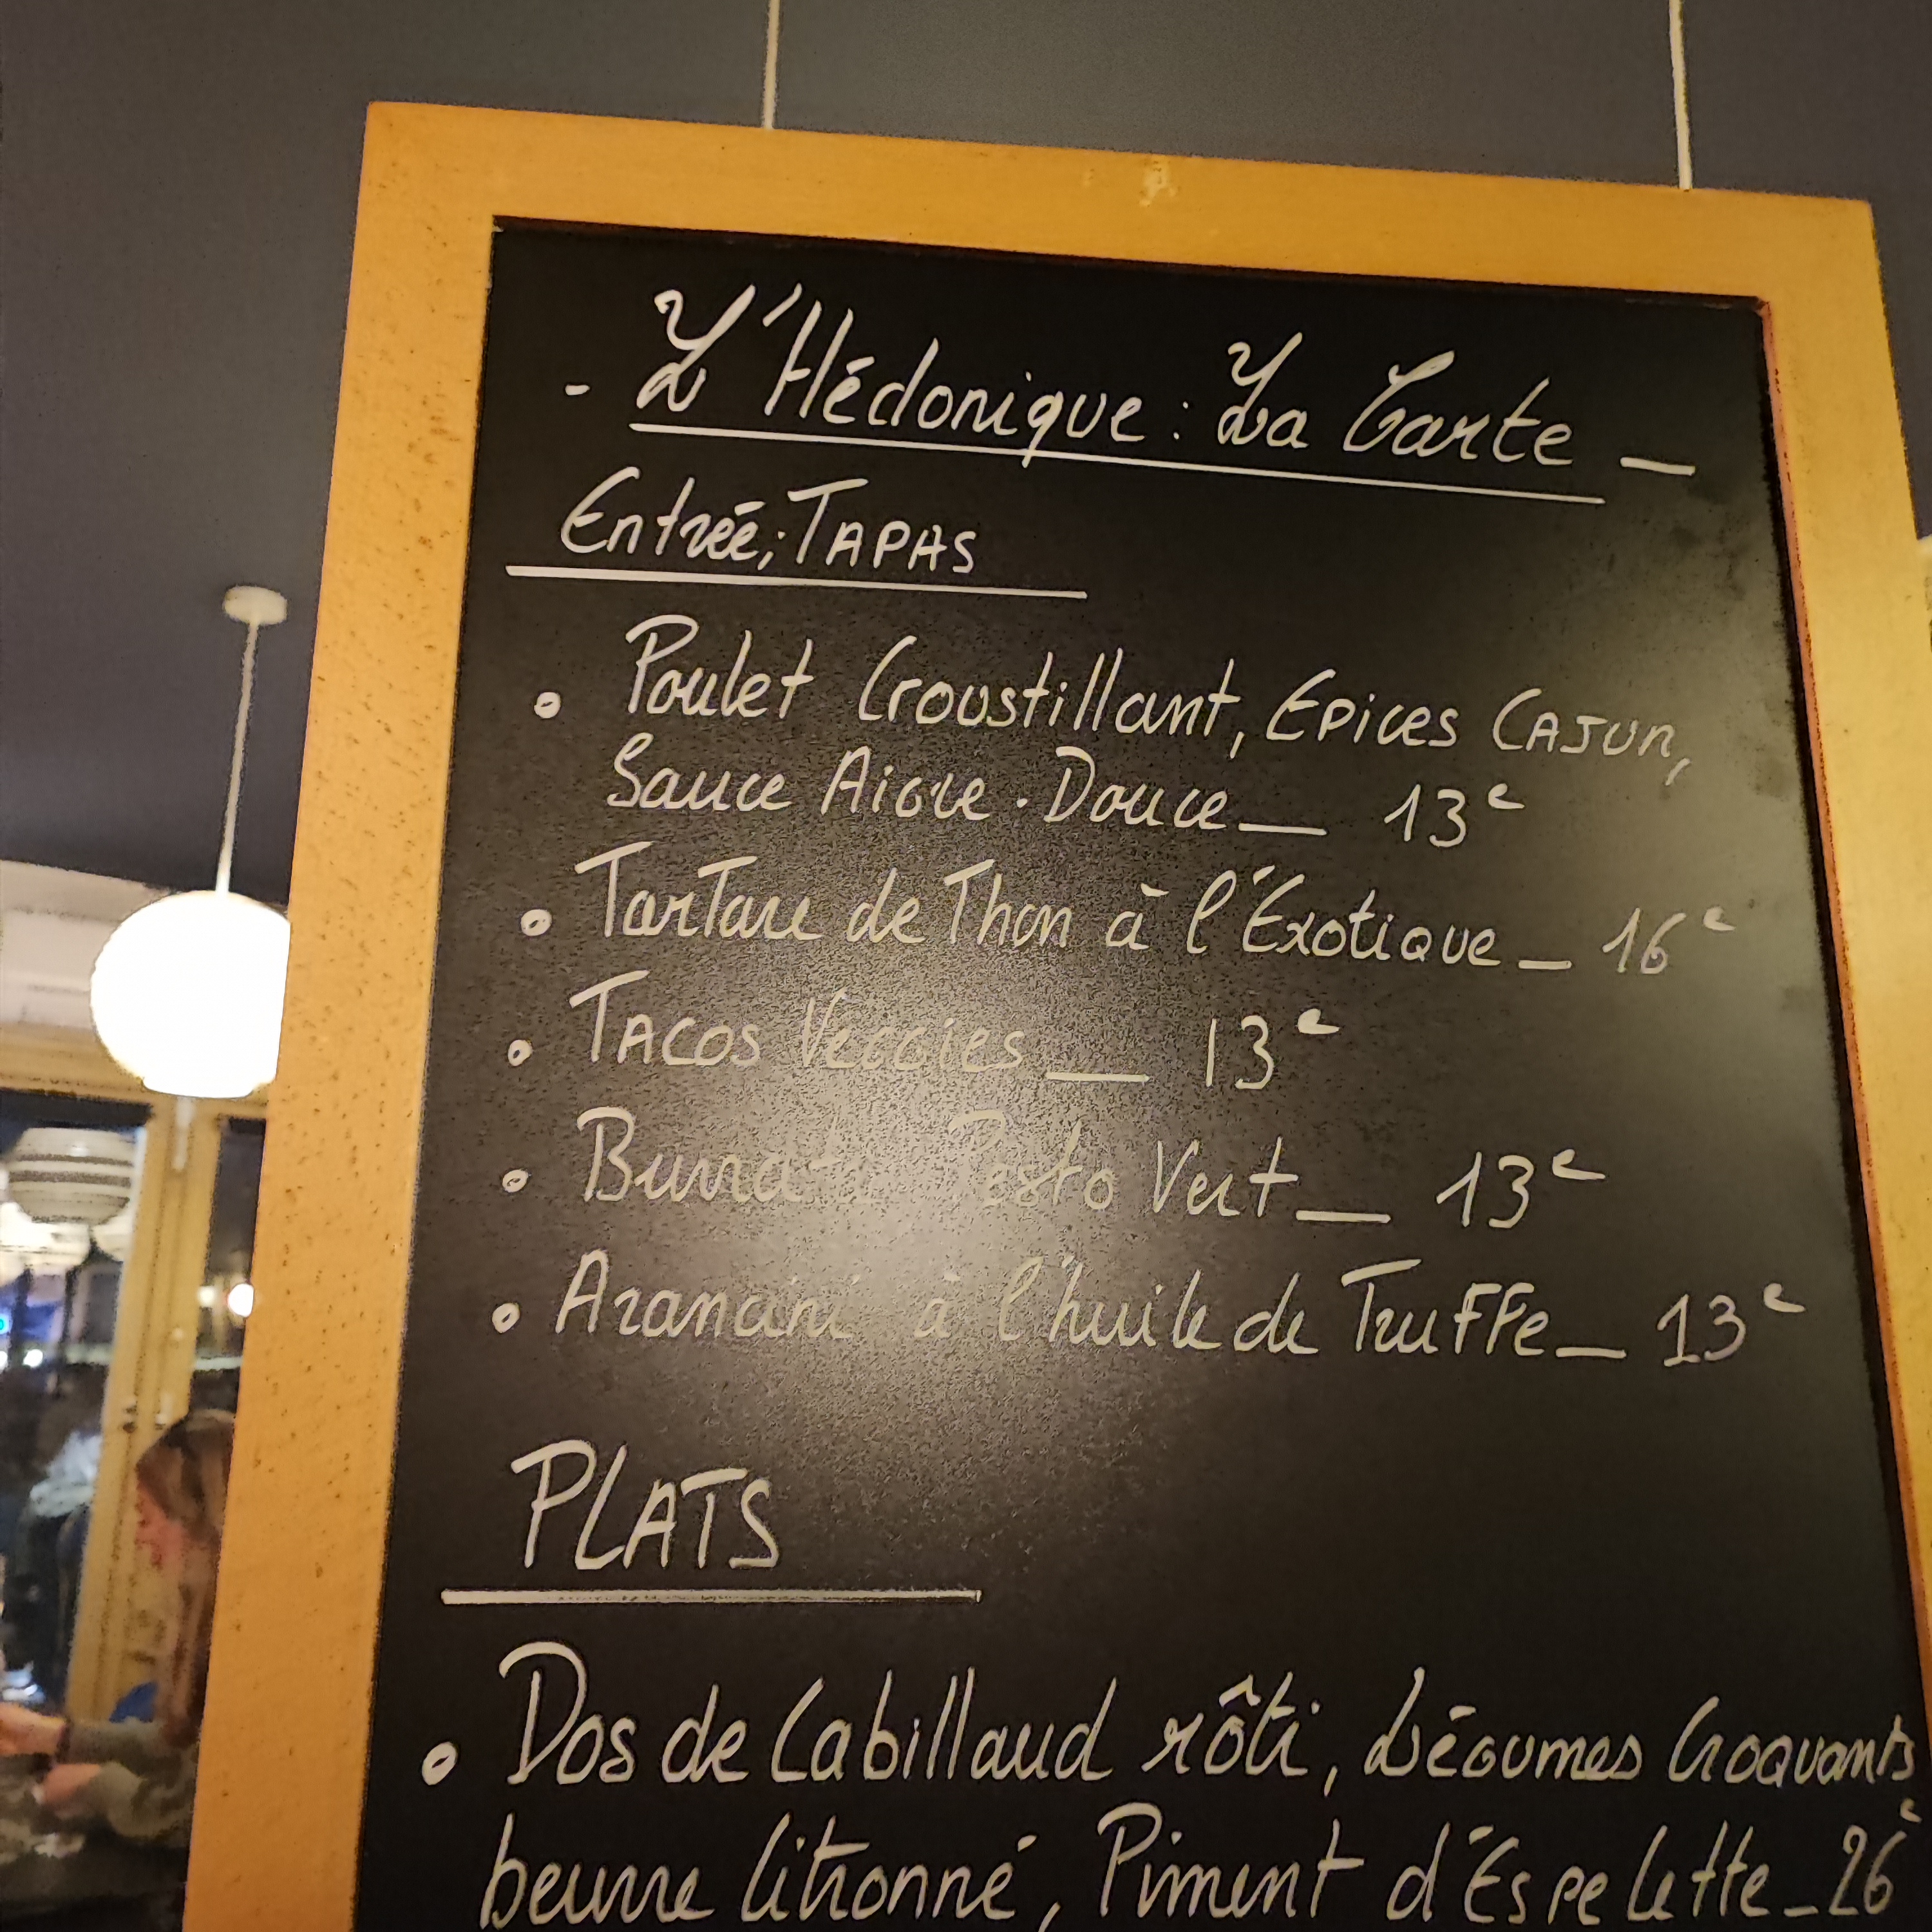 - L'Hédonique : La Carte -
Entrée; TAPAS
• Poulet Croustillant, Epices CAJUN,
Sauce Aigre-Douce _ 13€
• Tartare de Thon à l'Éxotique _ 16€
• TACOS Veggies _ 13€
• Burrata Pesto Vert _ 13€
• Arancini à l'huile de Truffe _ 13€
PLATS
• Dos de Cabillaud rôti, Légumes Croquants
beurre Citronné, Piment d'Éspelette _ 26€